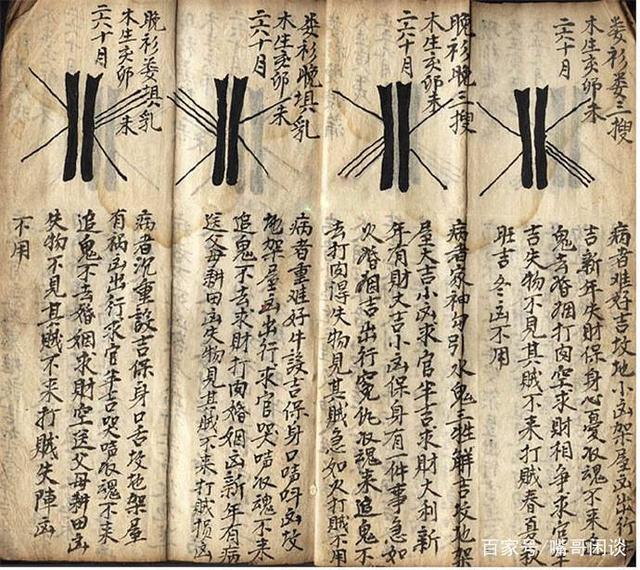 娄衫娄三搜
木生亥卯未
二六十月
病者难好吉坟地小凶架屋凶出行
吉新年失財保身心憂收魂不来
鬼去婚姻打肉空求財相争求官
吉失物不見其賊不来打賊春夏秋
旺吉冬凶不用
晚衫晚三搜
木生亥卯未
二六十月
病者家神勾引水鬼三牲解吉坟地架
屋大吉小凶求官半吉求財大利新
年有財大吉小凶保身有一件事急如
火婚姻吉出行冤仇收魂来追鬼不
去打肉得失物見其賊急如火打賊不用
娄衫晚填乳
木生亥卯未
二六十月
病者重难好牛設吉保身口嗟吁凶坟
地架屋凶出行求官哭嗟收魂不来
追鬼不去求財打肉婚姻凶新年有病
送父母耕田凶失物見其賊不来打賊损凶
晚衫娄填乳
木生亥卯未
二六十月
病者沉重設吉保身口舌坟地架屋
有祸凶出行求官半吉哭嗟收魂不来
追鬼不去婚姻求財空送父母耕田凶
失物不見其賊不来打賊失陣凶
不用
百家号/嘴哥闲谈